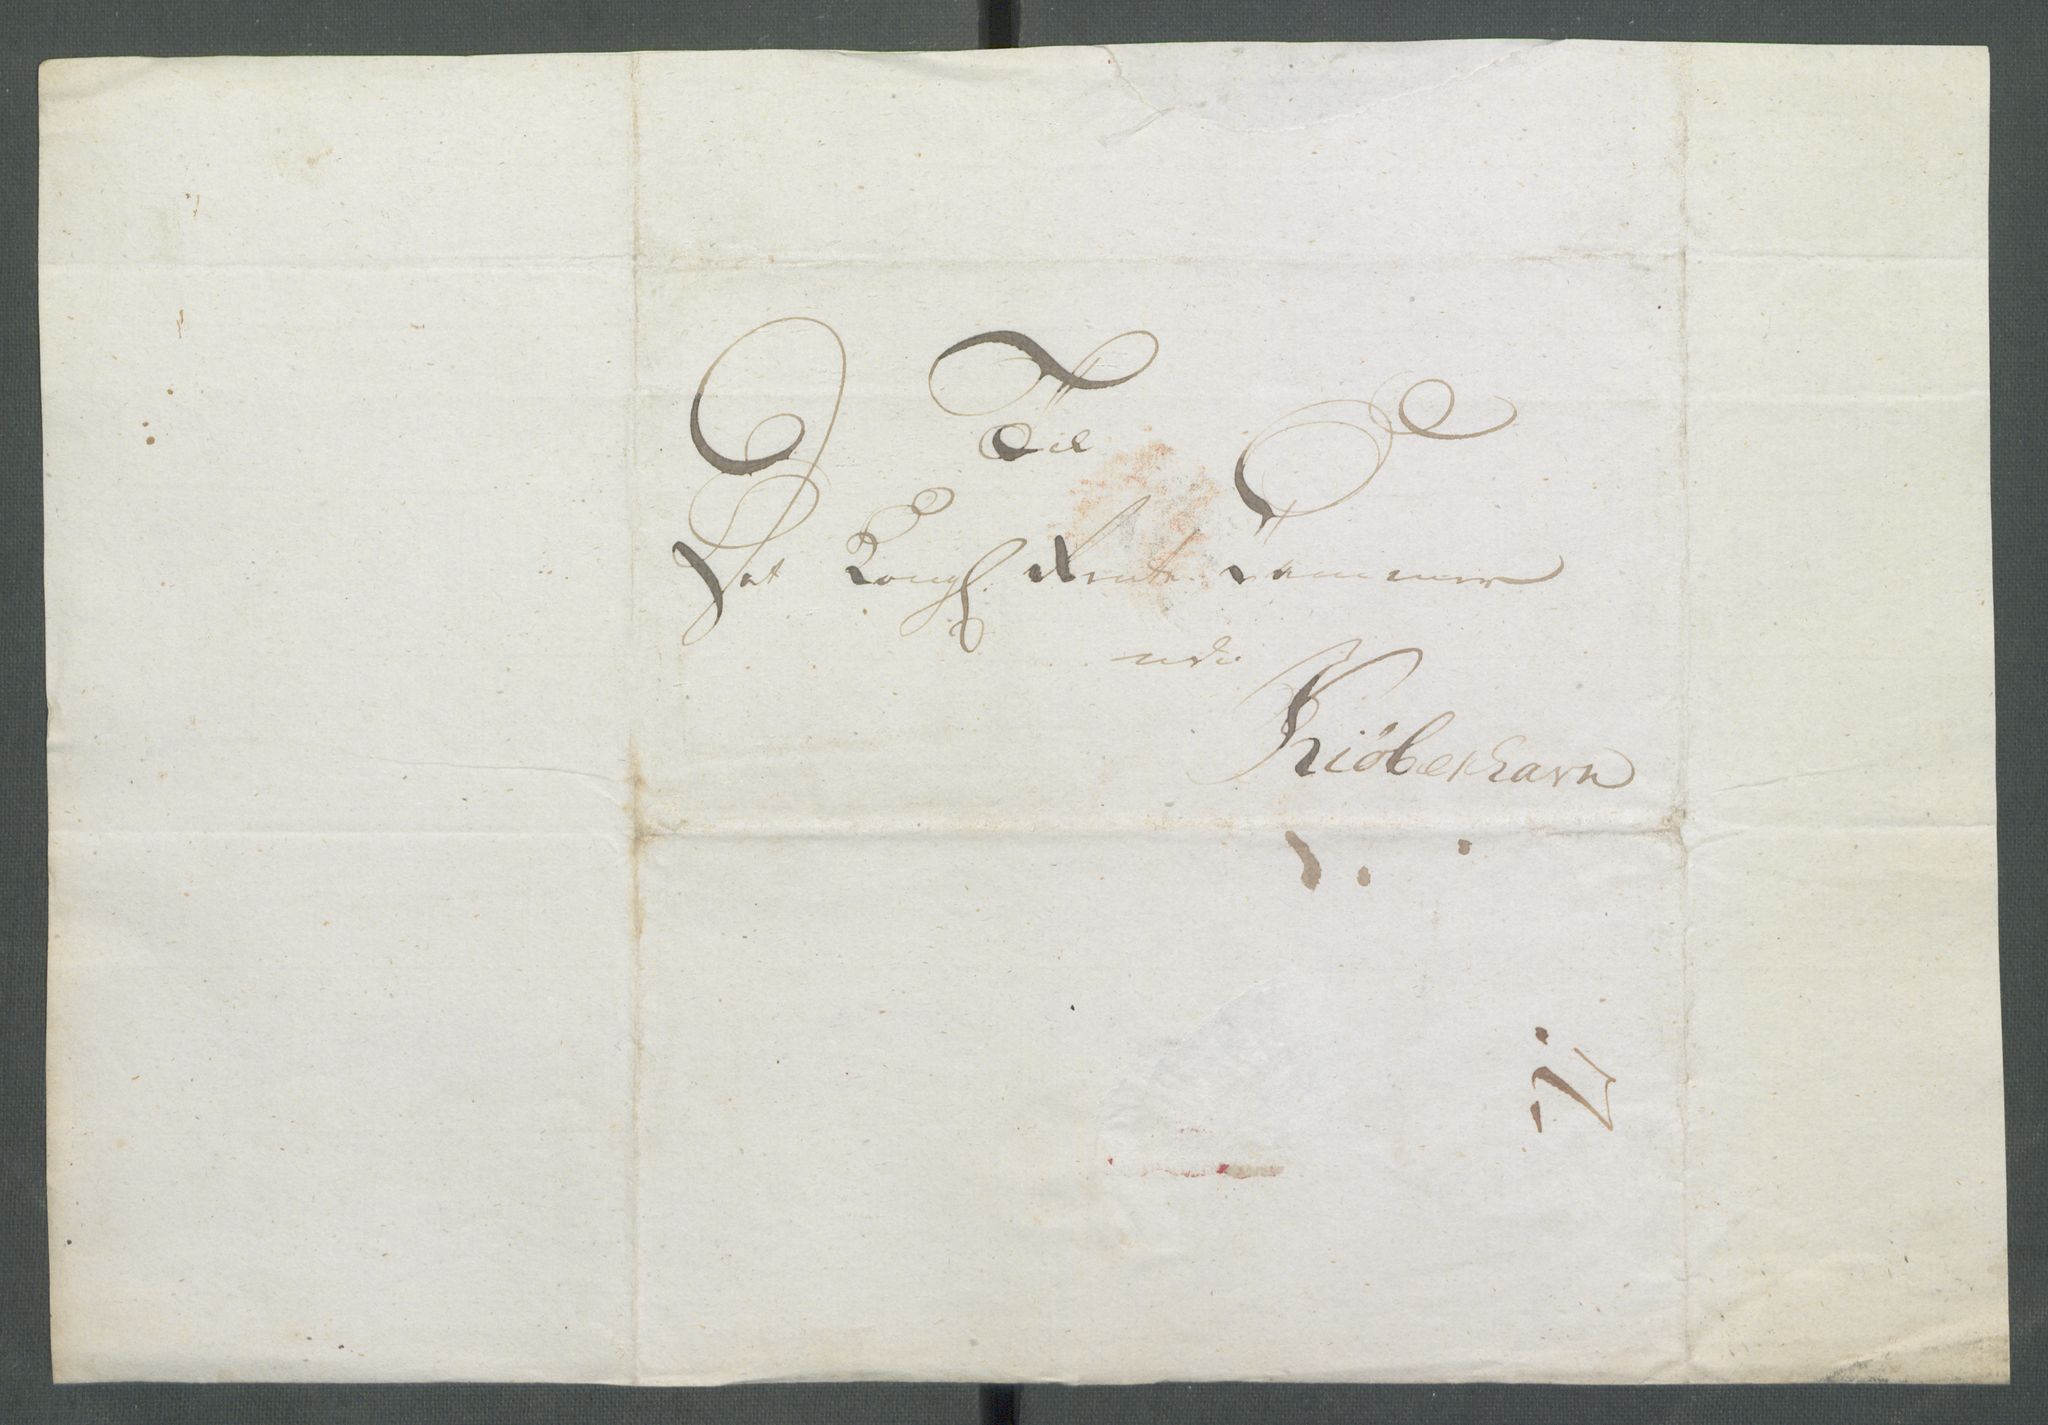 Til
Det Kongl Rente Cammer
udi
Kiöbenhavn